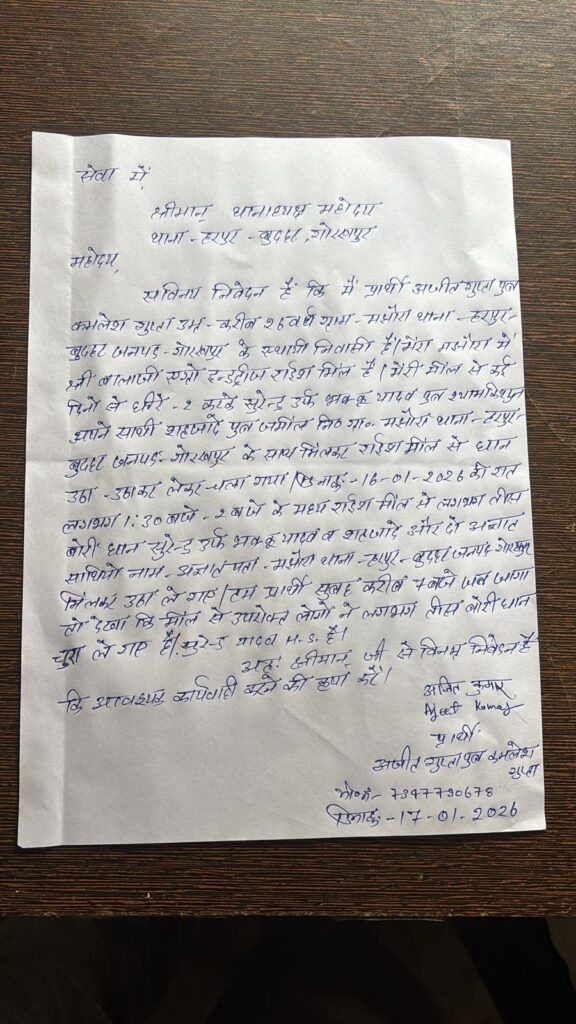 सेवा में,
श्रीमान् थानाध्यक्ष महोदय
थाना - हरपुर - बुदहट, गोरखपुर
महोदय,
सविनय निवेदन है कि मैं प्रार्थी अजीत गुप्ता पुत्र
कमलेश गुप्ता उम्र - करीब 26 वर्ष ग्राम - मझौरा थाना - हरपुर -
बुदहट जनपद - गोरखपुर के स्थायी निवासी हैं। मेरा मझौरा में
श्री बालाजी एग्रो इन्डट्रीज राईश मिल है। मेरी मील से कई
दिनों से धीरे - 2 करके सुरेन्द्र उर्फ भक्कू यादव पुत्र
अपने साथी शहजादे पुत्र जमील नि० ग्रा० मझौरा थाना - हरपुर -
बुदहट जनपद - गोरखपुर के साथ मिलकर राईश मील से धान
उठा - उठाकर लेकर चला गया। दिनाक: - 16-01-2026 की रात
लगभग 1:30 बजे - 2 बजे के मध्य राईश मील से लगभग तीस
बोरी धान सुरेन्द्र उर्फ भक्कू यादव व शहजादे और दो अज्ञात
साथियों नाम - अज्ञात पता - मझौरा थाना - हरपुर - बुदहट जनपद गोरखपुर
मिलकर उठा ले गए। हम प्रार्थी सुबह करीब 7 बजे जब जागा
तो देखा कि मील से उपरोक्त लोगों ने लगभग तीस बोरी धान
चुरा ले गए हैं। सुरेन्द्र यादव H.S. है।
अतः श्रीमान् जी से विनम्र निवेदन है
कि आवश्यक कार्यवाही करने की कृपा करें।
अजित कुमार
Ajeet Kumar
प्रार्थी
अजीत गुप्ता पुत्र कमलेश
गुप्ता
मो०नं० - 7347730678
दिनाक: - 17-01-2026